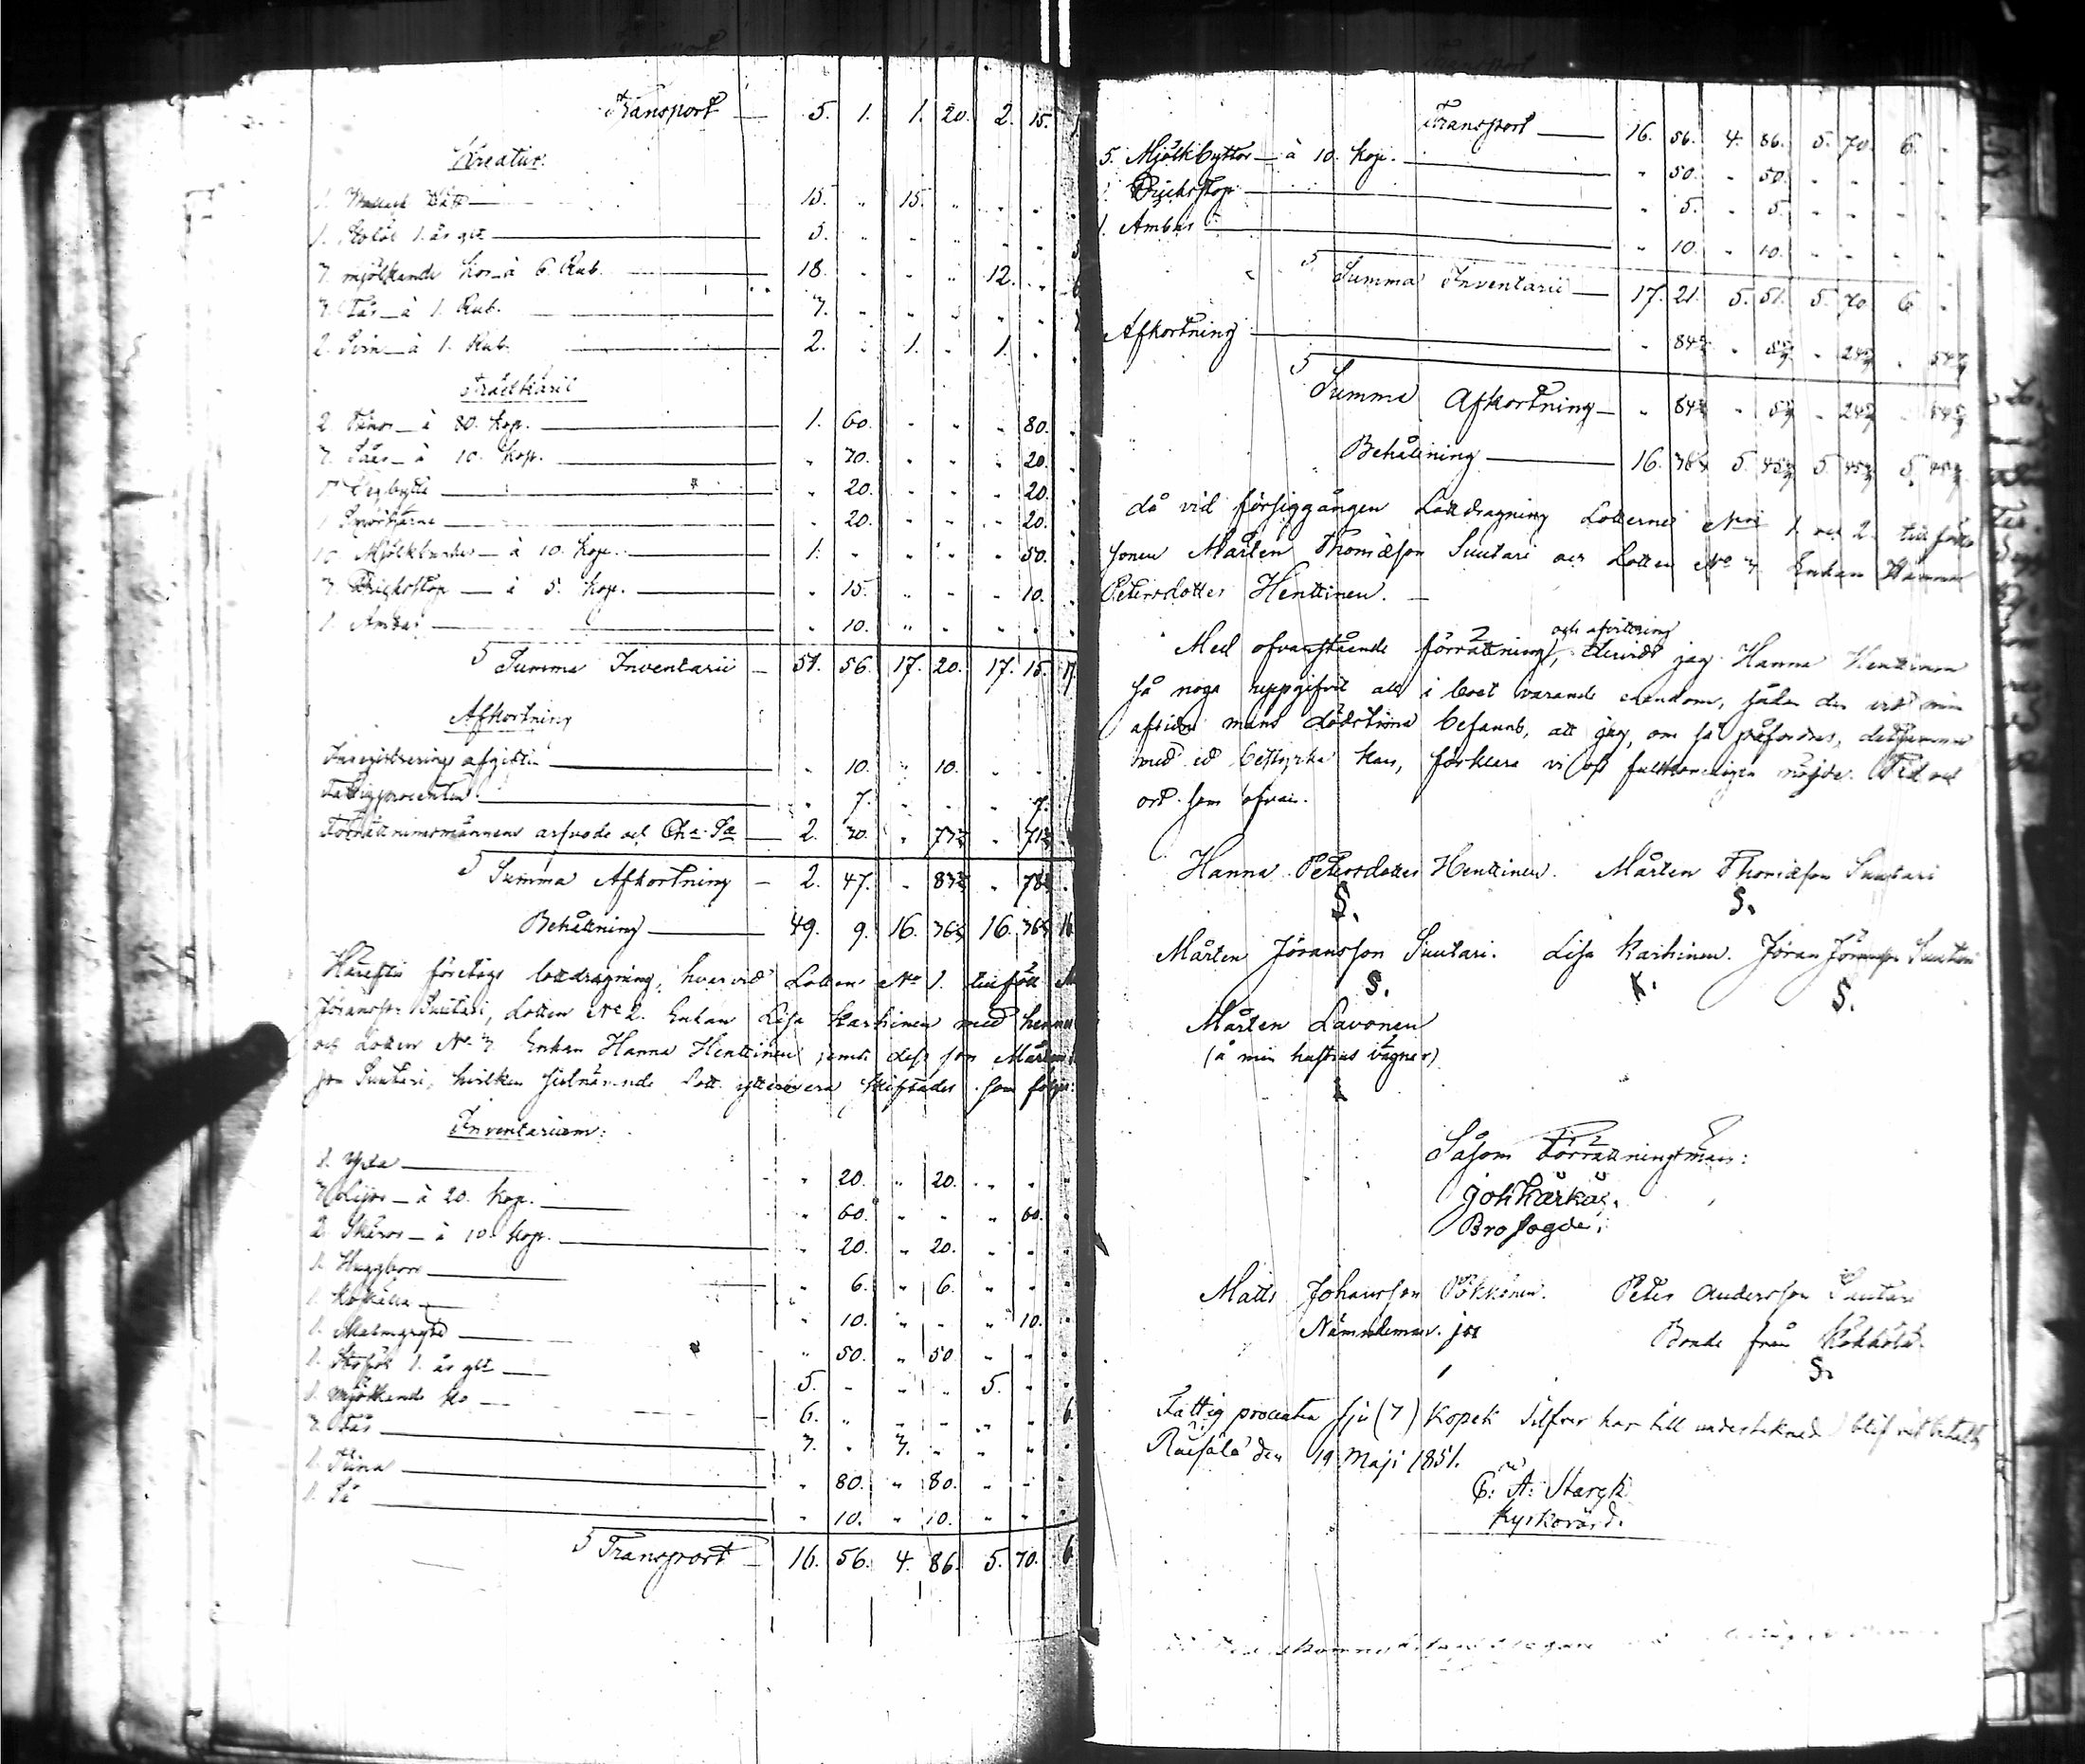 Transport — 5. 1. 1. 20. 2. 15.
Kreatur:
1. Wallack 15. " 15. " " "
1. 1. år glt — 5. " " " " "
3. mjölkande kor à 6 Rub. — 18. " " " 12. "
3. Får à 1 Rub. — 3. " " " " "
2. Svin à 1. Rub. — 2. " 1. " 1. "
Trädkäril
2 Tinor à 80. kop. — 1. 60. " " " 80.
7. Såar à 10. kop. — " 70. " " " 20.
1 Degbytta — " 20. " " " 20.
1 Smörkärna — " 20. " " " 20.
10 Mjölkbunkar à 10 kop. — 1. " " " " 50.
3. Drickstop — à 5. kop. — " 15. " " " 10.
1. Ambar — " 10. " " " "
Summa Inventarii — 51. 56. 17. 20. 17. 15. 17
Afkortning
Inregistrerings afgiften — " 10. " 10. " "
Fattigprocenten — " 7. " " " 7.
Förrättningsmännens arfvode och Cha Sa — 2. 30. " 73⅓ " 71⅓
Summa Afkortning — 2. 47. " 83⅓ " 78⅓
Behållning — 49. 9. 16. 36⅔ 16. 36⅔ 16
Härefter företogs lottdragning, hvarvid Lotten No 1. tillföll
Jöransson Suutari, Lotten No 2. Enkan Lisa Karhinen med hennes
och Lotten No 3. Enkan Hanna Henttinen jemte dess son Mårten
son Suutari, hvilken sistnämnde Lott ytterligare skiftades som följer:
Inventarium:
1. Yxa — " 20. " 20. " "
3 Lijor — à 20 kop. — " 60. " " " 60.
2 Skäror — à 10 kop. — " 20. " 20. " "
1. Huggbore — " 6. " 6. " "
1. Koskälla — " 10. " " " 10.
1. Malmgryta — " 50. " 50. " "
1. Stoföl 1. år glt — 5. " " " 5. "
1. Mjölkande ko — 6. " " " " " 6.
3. Får — 3. " 3. " " "
1. Tina — " 80. " 80. " "
1. Så — " 10. " 10. " "
Transport — 16. 56. 4. 86. 5. 70. 6
Transport — 16. 56. 4. 86. 5. 70. 6. "
5. Mjölkbyttor — à 10. kop. — " 50. " 50. " " " "
1 Drickstop — " 5. " 5. " " " "
1. Ambar — " 10. " 10. " " " "
Summa Inventarii — 17. 21. 5. 51. 5. 70. 6 "
Afkortning —
Summa Afkortning —
Behållning — 16.
då vid försiggången Lottdragning Lotterne Nris 1. och 2. tillföllo
sonen Mårten Thomasson Suutari och Lotten No 3 Enkan Hanna
Petersdotter Henttinen. —
Med ofvanstående förrättning, och afvittring hvarvid jag Hanna Henttinen
så noga uppgifvit allt i boet varande egendom, sådan den vid min
aflidne mans dödstimma befanns, att jag, om så påfordras, detsamma
med ed bestyrka kan, förklara vi oss fullkomligen nöjde. Tid och
ort som ofvan.
Hanna Petersdotter Henttinen. Mårten Thomasson Suutari
S. S.
Mårten Jöransson Suutari. Lisa Karhinen. Jöran Jöransson Suutari
S. K. S.
Mårten Lavonen
(å min hustrus vägnar)
Såsom Förrättningsmän:
Joh Kärkäs,
Brofogde.
Matts Johansson Pökkönen. Peter Andersson Suutari
Nämndeman. Bonde från
S.
Fattig procenten sju (7) Kopek Silfver har till undertecknad blifvit betalt
Räisälä den 19 Maji 1851.
C: A: Stargk
Kyrkovärd.